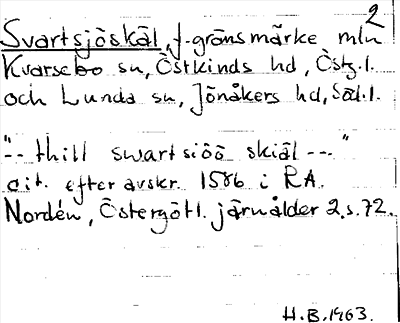 2
Svartsjöskäl, f. gränsmärke mln
Kvarsebo sn, Östkinds hd, Östg.l.
och Lunda sn, Jönåkers hd, Söd.l.
"-- thill swartsiöö skiäl ---"
cit. efter avskr. 1586 i RA.
Nordén, Östergötl. järnålder 2.s.72.
H.B.1963.